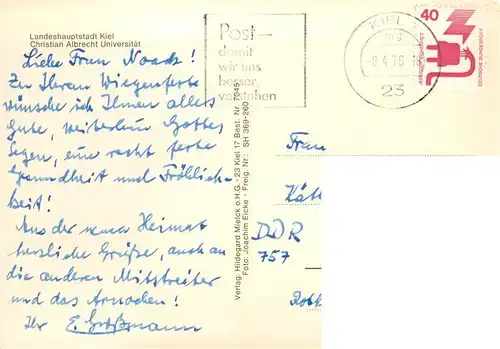 Landeshauptstadt Kiel
Christian Albrecht Universität
Liebe Frau Noack!
Zu Ihrem Wiegenfeste
wünsche ich Ihnen alles
Gute, weiterhin Gottes
Segen, eine recht feste
Gesundheit und Fröhlich-
keit!
Aus der neuen Heimat
herzliche Grüße, auch an
die anderen Mitstreiter
und das
Ihr E. Großmann
Verlag: Hildegard Mielck o.H.G. - 23 Kiel 17 Best. Nr. 7045
Foto: Joachim Eicke - Freig. Nr.: SH 369-260
Post-
damit
wir uns
besser
verstehen
KIEL
mg
23
40
DEUTSCHE BUNDESPOST
Frau
DDR
757